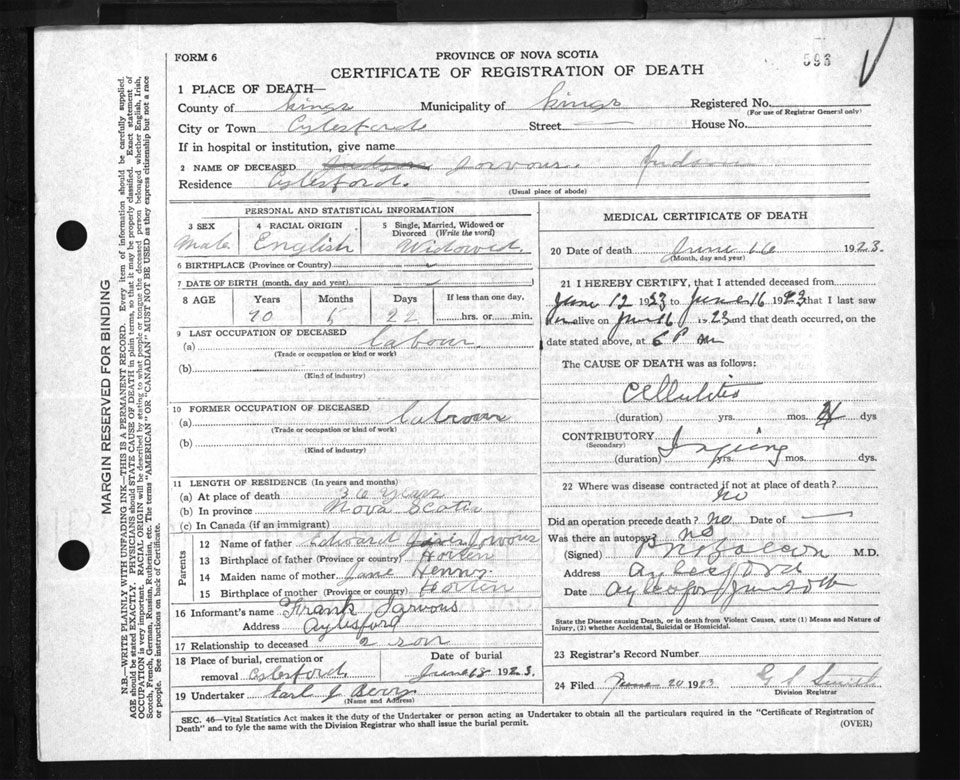 593
FORM 6
PROVINCE OF NOVA SCOTIA
CERTIFICATE OF REGISTRATION OF DEATH
1 PLACE OF DEATH—
County of Kings Municipality of Kings Registered No.
(For use of Registrar General only)
City or Town Cylesford Street — House No.
If in hospital or institution, give name
2 NAME OF DECEASED Judson Jorvous. Judson
Residence Cylesford.
(Usual place of abode)
PERSONAL AND STATISTICAL INFORMATION
3 SEX 4 RACIAL ORIGIN 5 Single, Married, Widowed or Divorced (Write the word)
Male English Widowed.
6 BIRTHPLACE (Province or Country)
7 DATE OF BIRTH (month, day and year)
8 AGE Years Months Days If less than one day,
70 5 22 hrs. or min.
9 LAST OCCUPATION OF DECEASED
(a) Labour.
(Trade or occupation or kind or work)
(b)
(Kind of industry)
10 FORMER OCCUPATION OF DECEASED
(a) Labour
(Trade or occupation or kind of work)
(b)
(Kind of industry)
11 LENGTH OF RESIDENCE (In years and months)
(a) At place of death 36 years
(b) In province Nova Scotia
(c) In Canada (if an immigrant)
Parents
12 Name of father Edward Jorvous
13 Birthplace of father (Province or country) Horten
14 Maiden name of mother Jane Henry
15 Birthplace of mother (Province or country) Horten
16 Informant's name Frank Jarvous
Address Aylesford
17 Relationship to deceased a son
18 Place of burial, cremation or removal Cylesford. Date of burial June 18 1923.
19 Undertaker Earl J Berry
(Name and Address)
MEDICAL CERTIFICATE OF DEATH
20 Date of death June 16 1923.
(Month, day and year)
21 I HEREBY CERTIFY, that I attended deceased from
June 12 1923 to June 16 1923 that I last saw
him alive on Jun 16 1923 and that death occurred, on the
date stated above, at 6 P m
The CAUSE OF DEATH was as follows:
Cellulitis
(duration) yrs. mos. 4 dys
CONTRIBUTORY
(Secondary)
(duration) yrs. mos. dys.
22 Where was disease contracted if not at place of death?
no
Did an operation precede death? No Date of —
Was there an autopsy? no
(Signed) M.D.
Address Aylesford
Date Aylesford Jun
State the Disease causing Death, or in death from Violent Causes, state (1) Means and Nature of
Injury, (2) whether Accidental, Suicidal or Homicidal.
23 Registrar's Record Number
24 Filed June 20 1923 Smith
Division Registrar
SEC. 46—Vital Statistics Act makes it the duty of the Undertaker or person acting as Undertaker to obtain all the particulars required in the "Certificate of Registration of
Death" and to fyle the same with the Division Registrar who shall issue the burial permit.
(OVER)
MARGIN RESERVED FOR BINDING
N.B.—WRITE PLAINLY WITH UNFADING INK—THIS IS A PERMANENT RECORD. Every item of information should be carefully supplied.
AGE should be stated EXACTLY. PHYSICIANS should STATE CAUSE OF DEATH in plain terms, so that it may be properly classified. Exact statement of
OCCUPATION is very important. RACIAL ORIGIN will be described by stating to what people or tongue the deceased person belonged whether English, Irish,
Scotch, French, German, Russian, Ruthenian, etc. The terms "AMERICAN" OR "CANADIAN" MUST NOT BE USED as they express citizenship but not a race
or people. See instructions on back of Certificate.